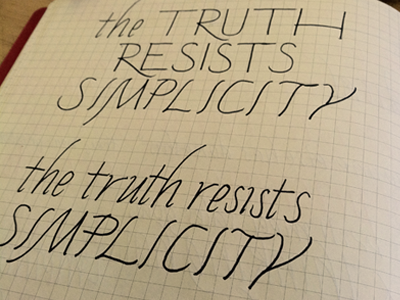 the TRUTH
RESISTS
SIMPLICITY
the truth resists
SIMPLICITY